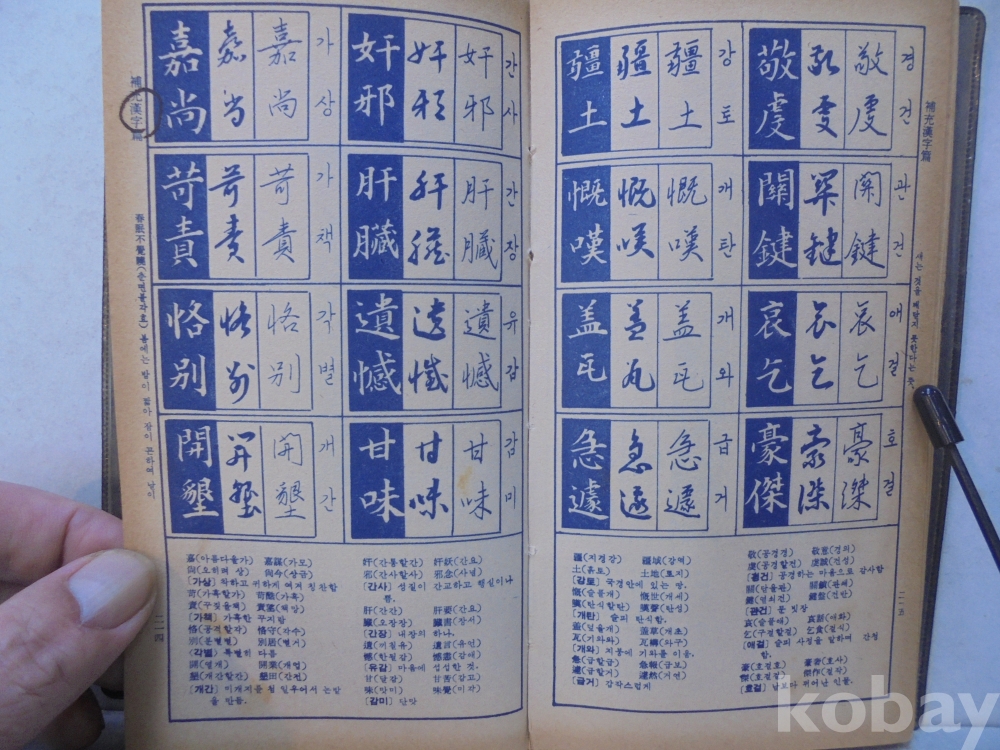 補充漢字篇
嘉尚 嘉尚 嘉尚 가상
奸邪 奸邪 奸邪 간사
苛責 苛責 苛責 가책
肝臟 肝臟 肝臟 간장
恪別 恪別 恪別 각별
遺憾 遺憾 遺憾 유감
開墾 開墾 開墾 개간
甘味 甘味 甘味 감미
春眠不覺曉(춘면불각효) 봄에는 밤이 짧아
嘉(아름다울가) 嘉謀(가모)
尙(오히려 상) 尙今(상금)
[가상] 착하고 귀하게 여겨 칭찬함
苛(가혹할가) 苛酷(가혹)
責(꾸짖을책) 責望(책망)
[가책] 가혹한 꾸지람
恪(공경할각) 恪守(각수)
別(분별별) 別居(별거)
[각별] 특별히 다름
開(열개) 開業(개업)
墾(개간할간) 墾田(간전)
[개간] 미개지를 첨
을 만듬.
奸(간통할간) 奸妖(간요)
邪(간사할사) 邪念(사념)
[간사] 성질이 간교하고 행실이나
肝(간간) 肝要(간요)
臟(오장장)
[간장] 내장의 하나.
遺(끼칠유) 遺言(유언)
憾(한될감)
[유감] 마음에 섭섭한 것.
甘(달감) 甘苦(감고)
味(맛미) 味覺(미각)
[감미] 단맛
二一四
補充漢字篇
疆土 疆土 疆土 강토
敬虔 敬虔 敬虔 경건
慨嘆 慨嘆 慨嘆 개탄
關鍵 關鍵 關鍵 관건
盖瓦 盖瓦 盖瓦 개와
哀乞 哀乞 哀乞 애걸
急遽 急遽 急遽 급거
豪傑 豪傑 豪傑 호걸
疆(지경강) 疆域(강역)
土(흙토) 土地(토지)
[강토] 국경안에 있는 땅.
慨(슬플개) 慨世(개세)
嘆(탄식할탄) 嘆聲(탄성)
[개탄] 슬피 탄식함.
盖(덮을개) 蓋草(개초)
瓦(기와와) 瓦溝(와구)
[개와] 지붕에 기와를 이음.
急(급할급) 急報(급보)
遽(급할거) 遽然(거연)
[급거] 갑작스럽게
敬(공경경) 敬意(경의)
虔(공경할건) 虔誠(건성)
[경건] 공경하는 마음으로 감사함
[관건] 문빗장
哀(슬플애) 哀話(애화)
乞(구걸할걸) 乞食(걸식)
[애걸] 슬피 사정을 말하며 간청
함.
豪(호걸호) 豪奢(호사)
傑(호걸걸) 傑作(걸작)
[호걸] 남보다 뛰어난 인물.
二一五
kobay